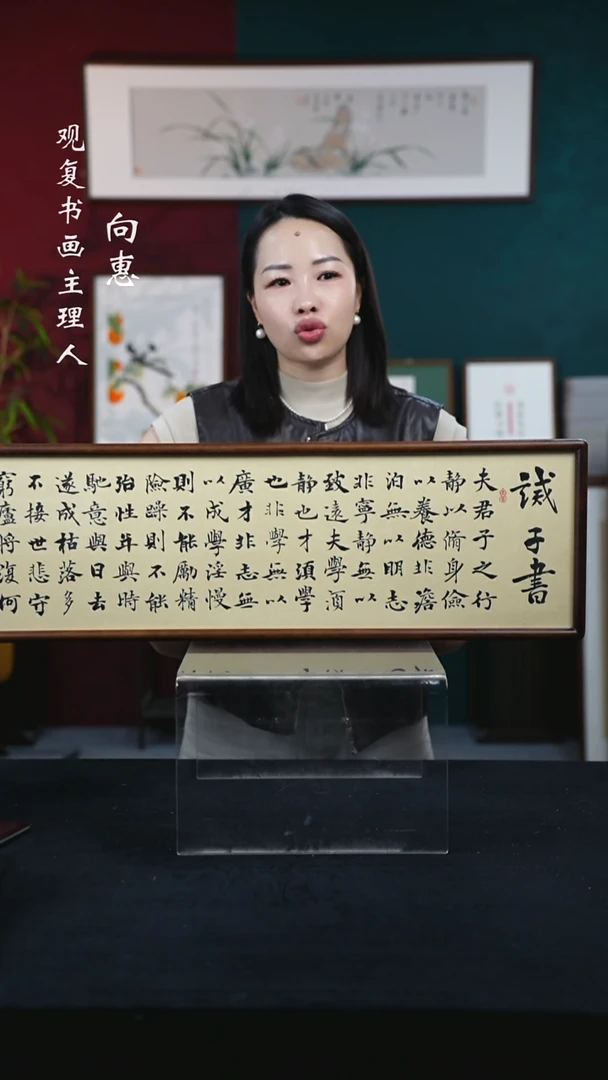 观复书画主理人
向惠
誡子書
夫君子之行
静以脩身儉
以養德非澹
泊無以明志
非寧静無以
致遠夫學須
静也才須學
也非學無以
廣才非志無
以成學淫慢
則不能勵精
險躁則不能
冶性年與時
馳意與日去
遂成枯落多
不接世悲守
窮廬將復何